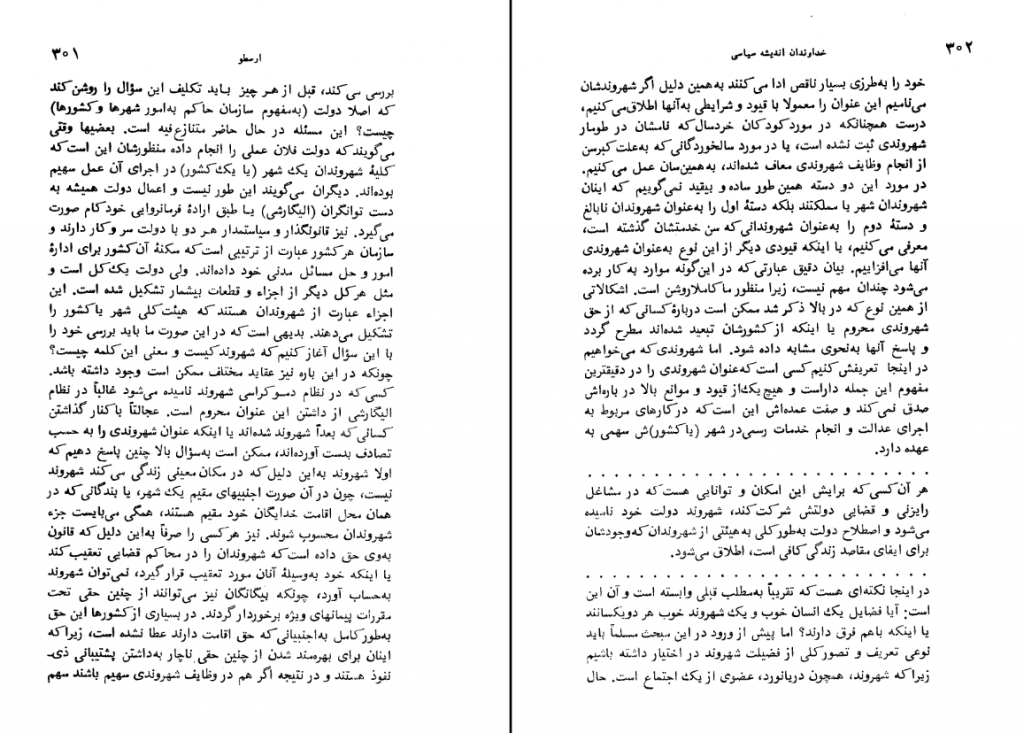 ۳۰۱
ارسطو
بررسی می‌کند، قبل از هر چیز باید تکلیف این سؤال را روشن کند
که اصلا دولت (به‌مفهوم سازمان حاکم به‌امور شهرها و کشورها)
چیست؟ این مسئله در حال حاضر متنازع‌فیه است. بعضیها وقتی
می‌گویند که دولت فلان عملی را انجام داده منظورشان این است که
کلیهٔ شهروندان یک شهر (یا یک کشور) در اجرای آن عمل سهیم
بوده‌اند. دیگران می‌گویند این طور نیست و اعمال دولت همیشه به
دست توانگران (الیگارشی) یا طبق ارادهٔ فرمانروایی خودکام صورت
می‌گیرد. نیز قانونگذار و سیاستمدار هر دو با دولت سر و کار دارند و
سازمان هر کشور عبارت از ترتیبی است که سکنهٔ آن کشور برای ادارهٔ
امور و حل مسائل مدنی خود داده‌اند. ولی دولت یک کل است و
مثل هر کل دیگر از اجزاء و قطعات بیشمار تشکیل شده است. این
اجزاء عبارت از شهروندان هستند که هیئت کلی شهر یا کشور را
تشکیل می‌دهند. بدیهی است که در این صورت ما باید بررسی خود را
با این سؤال آغاز کنیم که شهروند کیست و معنی این کلمه چیست؟
چونکه در این باره نیز عقاید مختلف ممکن است وجود داشته باشد.
کسی که در نظام دموکراسی شهروند نامیده می‌شود غالباً در نظام
الیگارشی از داشتن این عنوان محروم است. عجالتاً با کنار گذاشتن
کسانی که بعداً شهروند شده‌اند یا اینکه عنوان شهروندی را به حسب
تصادف بدست آورده‌اند، ممکن است به‌سؤال بالا چنین پاسخ دهیم که
اولا شهروند به‌این دلیل که در مکان معینی زندگی می‌کند شهروند
نیست، چون در آن صورت اجنبیهای مقیم یک شهر، یا بندگانی که در
همان محل اقامت خدایگان خود مقیم هستند، همگی می‌بایست جزء
شهروندان محسوب شوند. نیز هر کسی را صرفاً به‌این دلیل که قانون
به‌وی حق داده است که شهروندان را در محاکم قضایی تعقیب کند
یا اینکه خود به‌وسیلهٔ آنان مورد تعقیب قرار گیرد، نمی‌توان شهروند
به‌حساب آورد، چونکه بیگانگان نیز می‌توانند از چنین حقی تحت
مقررات پیمانهای ویژه برخوردار گردند. در بسیاری از کشورها این حق
به‌طور کامل به‌اجنبیانی که حق اقامت دارند عطا نشده است، زیرا که
اینان برای بهره‌مند شدن از چنین حقی ناچار به‌داشتن پشتیبانی ذی‌ـ
نفوذ هستند و در نتیجه اگر هم در وظایف شهروندی سهیم باشند سهم
۳۰۲
خداوندان اندیشه سیاسی
خود را به‌طرزی بسیار ناقص ادا می‌کنند به‌همین دلیل اگر شهروندشان
می‌نامیم این عنوان را معمولا با قیود و شرایطی به‌آنها اطلاق می‌کنیم،
درست همچنانکه در مورد کودکان خردسال که نامشان در طومار
شهروندی ثبت نشده است، یا در مورد سالخوردگانی که به‌علت کبرسن
از انجام وظایف شهروندی معاف شده‌اند، به‌همین‌سان عمل می‌کنیم.
در مورد این دو دسته همین طور ساده و بیقید نمی‌گوییم که اینان
شهروندان شهر یا مملکتند بلکه دستهٔ اول را به‌عنوان شهروندان نابالغ
و دستهٔ دوم را به‌عنوان شهروندانی که سن خدمتشان گذشته است،
معرفی می‌کنیم، یا اینکه قیودی دیگر از این نوع به‌عنوان شهروندی
آنها می‌افزاییم. بیان دقیق عبارتی که در این‌گونه موارد به‌کار برده
می‌شود چندان مهم نیست، زیرا منظور ما کاملا روشن است. اشکالاتی
از همین نوع که در بالا ذکر شد ممکن است دربارهٔ کسانی که از حق
شهروندی محروم یا اینکه از کشورشان تبعید شده‌اند مطرح گردد
و پاسخ آنها به‌نحوی مشابه داده شود. اما شهروندی که می‌خواهیم
در اینجا تعریفش کنیم کسی است که عنوان شهروندی را در دقیقترین
مفهوم این جمله داراست و هیچ‌یک از قیود و موانع بالا در باره‌اش
صدق نمی‌کند و صفت عمده‌اش این است که در کارهای مربوط به
اجرای عدالت و انجام خدمات رسمی در شهر (یا کشور)ش سهمی به
عهده دارد.
. . . . . . . . . . . . . . . . . . . . . . . .
هر آن کسی که برایش این امکان و توانایی هست که در مشاغل
رایزنی و قضایی دولتش شرکت کند، شهروند دولت خود نامیده
می‌شود و اصطلاح دولت به‌طور کلی به‌هیئتی از شهروندان که وجودشان
برای ایفای مقاصد زندگی کافی است، اطلاق می‌شود.
. . . . . . . . . . . . . . . . . . . . . . . .
در اینجا نکته‌ای هست که تقریباً به‌مطلب قبلی وابسته است و آن این
است: آیا فضایل یک انسان خوب و یک شهروند خوب هر دو یکسانند
یا اینکه باهم فرق دارند؟ اما پیش از ورود در این مبحث مسلماً باید
نوعی تعریف و تصور کلی از فضیلت شهروند در اختیار داشته باشیم
زیرا که شهروند، همچون دریانورد، عضوی از یک اجتماع است. حال